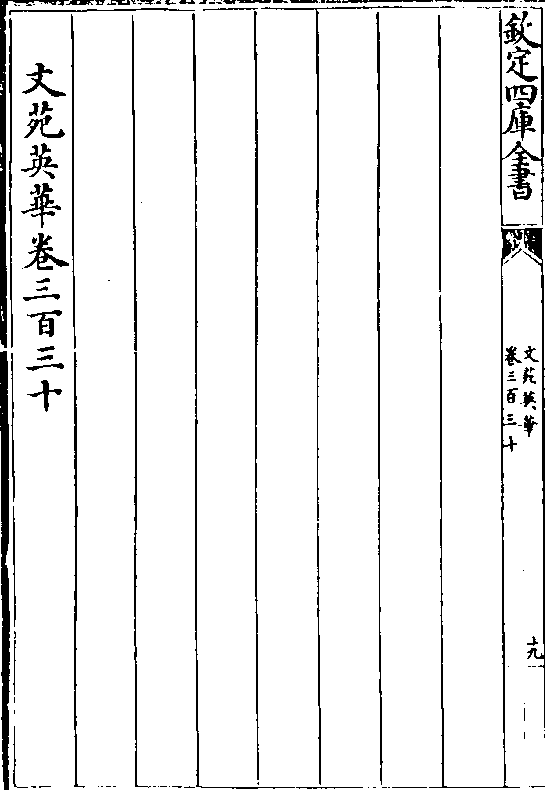 欽定四庫全書
文苑英華
卷三百三十
十九
文苑英華卷三百三十